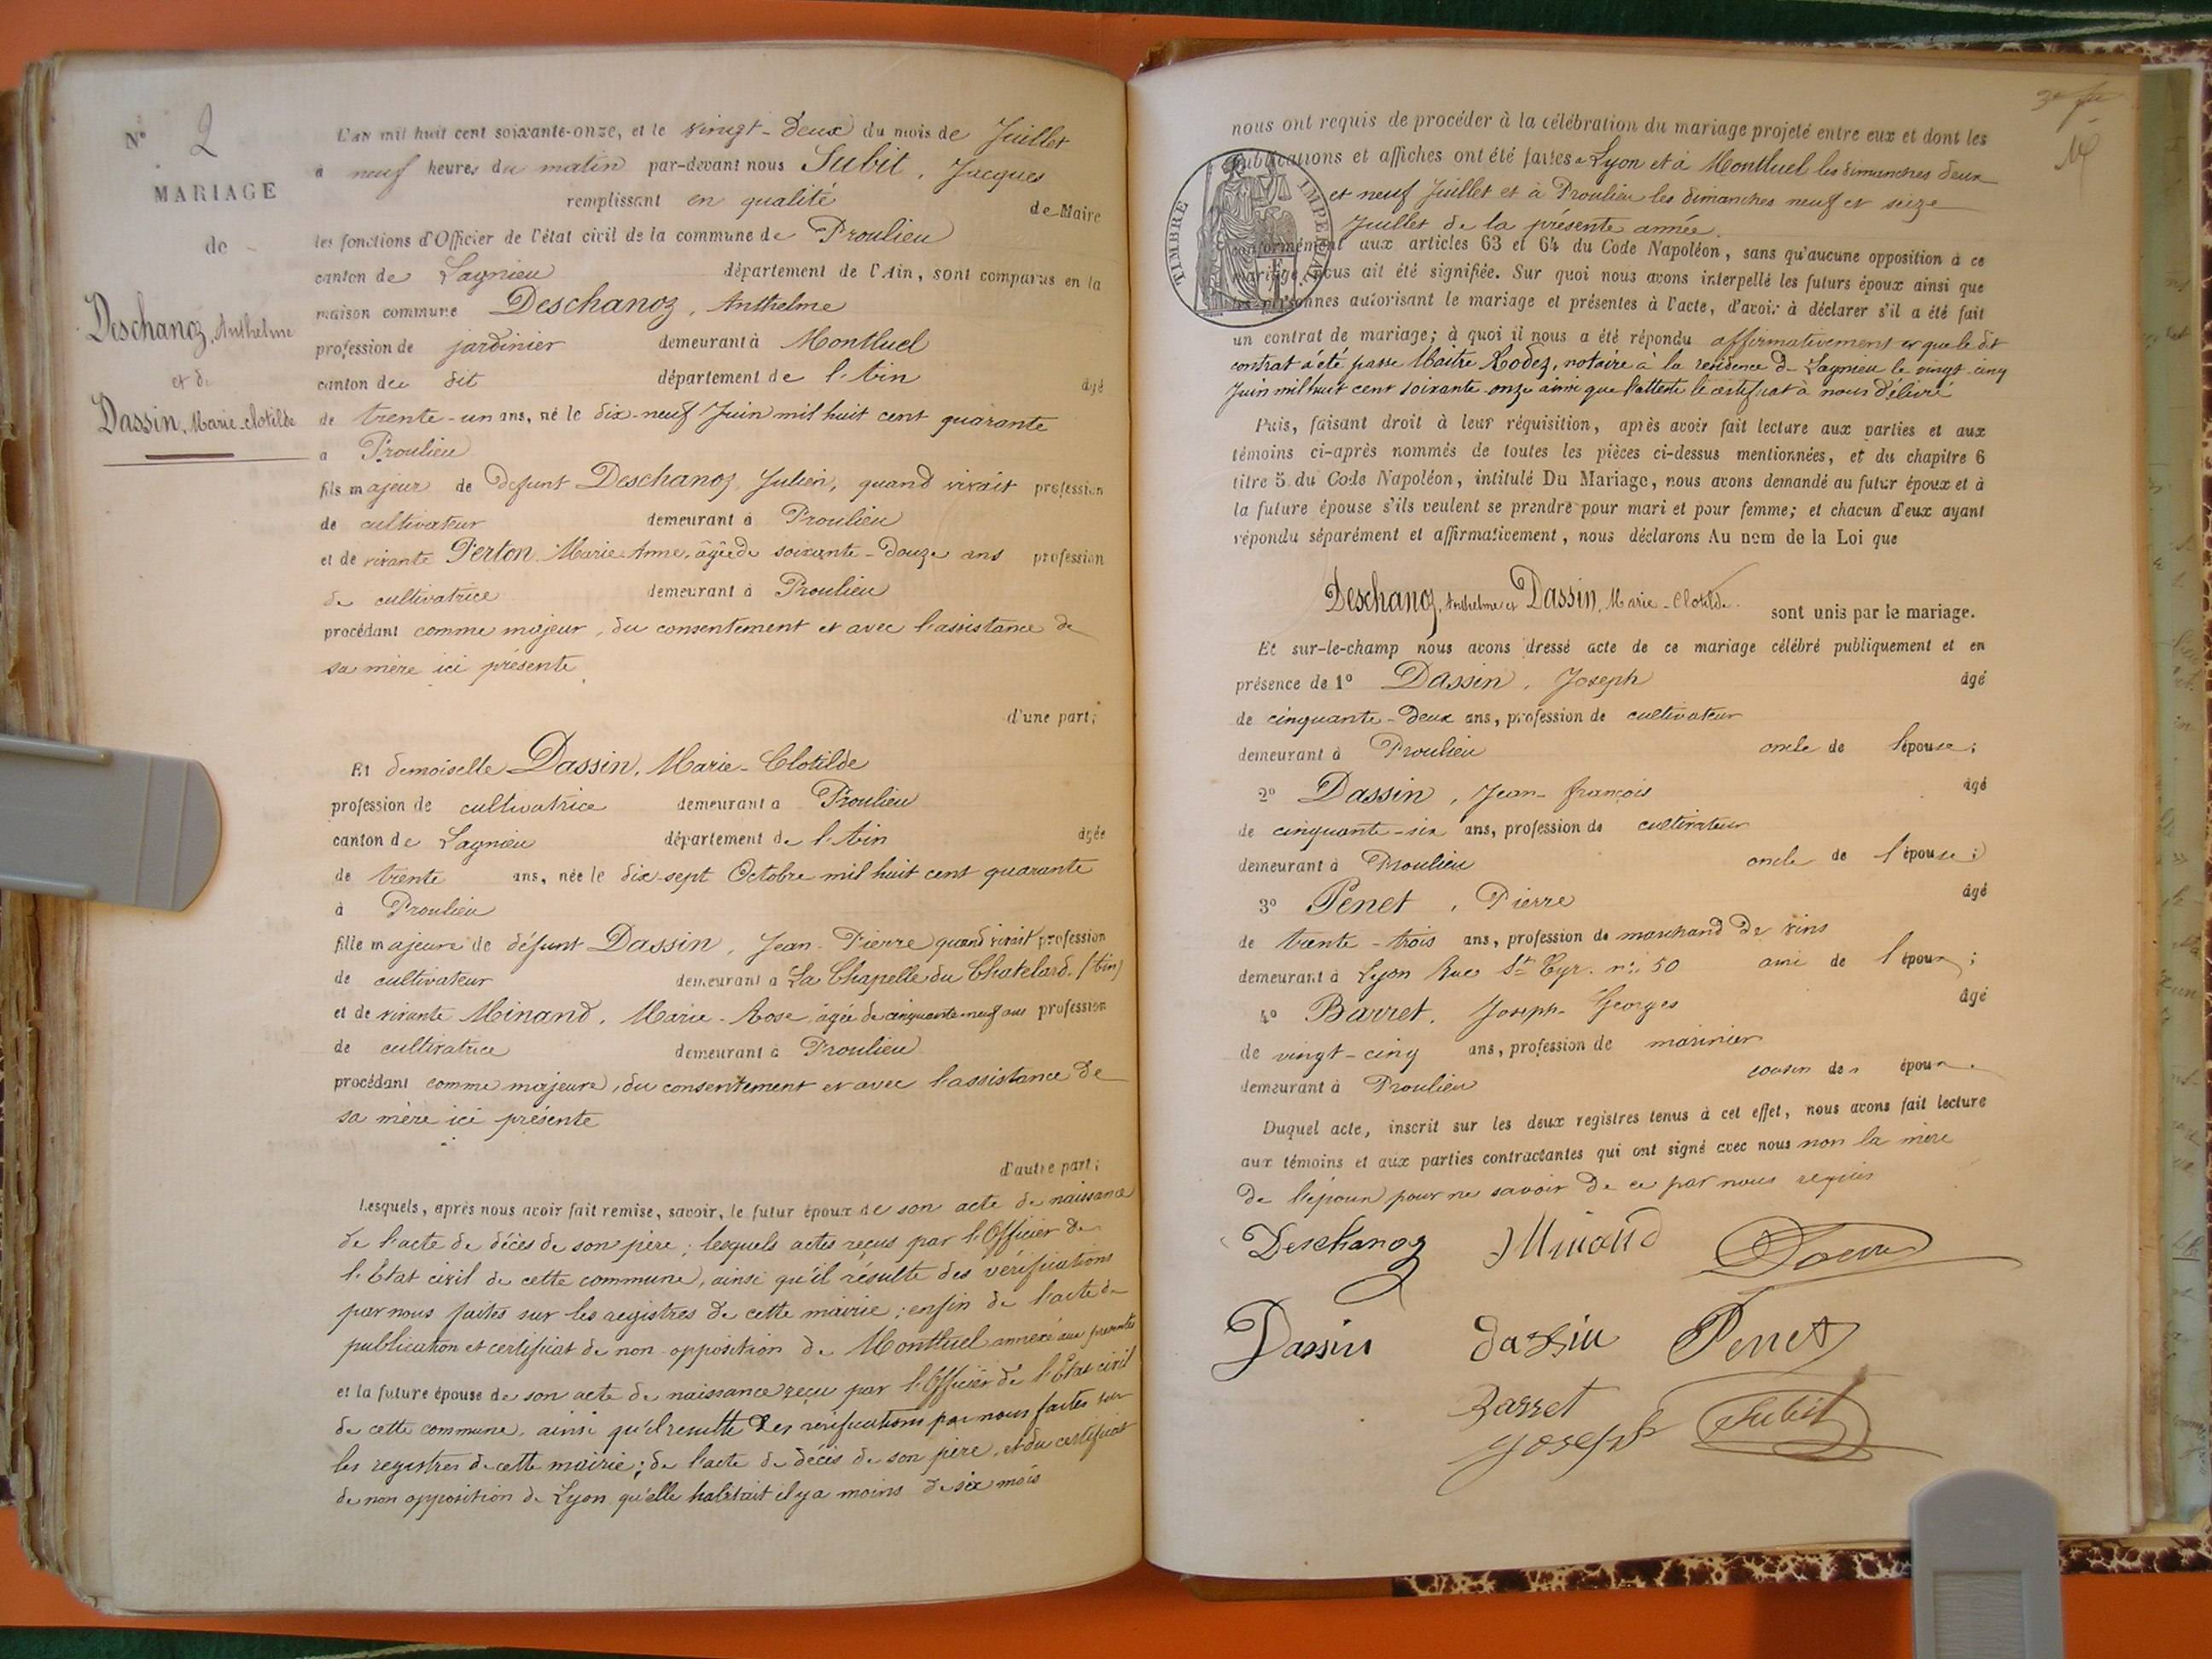 N° 2
MARIAGE
de
Deschanoz, Anthelme
et de
Dassin, Marie-Clotilde
L'an mil huit cent soixante-onze, et le vingt-deux du mois de Juillet
à neuf heures du matin par-devant nous Subit, Jacques
remplissant en qualité de Maire
les fonctions d'Officier de l'état civil de la commune de Proulieu
canton de Lagnieu département de l'Ain, sont comparus en la
maison commune Deschanoz, Anthelme
profession de jardinier demeurant à Montluel
canton du dit département de l'Ain âgé
de trente-un ans, né le dix-neuf Juin mil huit cent quarante
à Proulieu
fils majeur de defunt Deschanoz, Julien, quand vivait profession
de cultivateur demeurant à Proulieu
et de vivante Perton Marie-Anne, âgée de soixante-douze ans profession
de cultivatrice demeurant à Proulieu
procédant comme majeur, du consentement et avec l'assistance de
sa mère ici présente
d'une part;
Et demoiselle Dassin, Marie-Clotilde
profession de cultivatrice demeurant à Proulieu
canton de Lagnieu département de l'Ain âgée
de trente ans, née le dix-sept Octobre mil huit cent quarante
à Proulieu
fille majeure de défunt Dassin, Jean-Pierre quand vivait profession
de cultivateur demeurant à La Chapelle du Chatelard (Ain)
et de vivante Minand, Marie-Rose, âgée de cinquante neuf ans profession
de cultivatrice demeurant à Proulieu
procédant comme majeure, du consentement et avec l'assistance de
sa mère ici présente
d'autre part;
Lesquels, après nous avoir fait remise, savoir, le futur époux de son acte de naissance
de l'acte de décès de son père; lesquels actes reçus par l'Officier de
l'Etat civil de cette commune, ainsi qu'il résulte des vérifications
par nous faites sur les registres de cette mairie; enfin de l'acte de
publication et certificat de non-opposition de Montluel annexé aux présentes
et la future épouse de son acte de naissance reçu par l'Officier de l'Etat civil
de cette commune, ainsi qu'il resulte des verifications par nous faites sur
les registres de cette mairie; de l'acte de décès de son père, et du certificat
de non opposition de Lyon qu'elle habitait il y a moins de six mois
nous ont requis de procéder à la célébration du mariage projeté entre eux et dont les
publications et affiches ont été faites à Lyon et à Montluel les dimanches deux
et neuf Juillet et à Proulieu les dimanches neuf et seize
Juillet de la présente année.
TIMBRE IMPERIAL
conformément aux articles 63 et 64 du Code Napoléon, sans qu'aucune opposition à ce
mariage nous ait été signifiée. Sur quoi nous avons interpellé les futurs époux ainsi que
les personnes autorisant le mariage et présentes à l'acte, d'avoir à déclarer s'il a été fait
un contrat de mariage; à quoi il nous a été répondu affirmativement et que le dit
contrat a été passé Maitre Rodez, notaire à la residence de Lagnieu le vingt-cinq
Juin mil huit cent soixante-onze ainsi que l'atteste le certificat à nous délivré
Puis, faisant droit à leur réquisition, après avoir fait lecture aux parties et aux
témoins ci-après nommés de toutes les pièces ci-dessus mentionnées, et du chapitre 6
titre 5 du Code Napoléon, intitulé Du Mariage, nous avons demandé au futur époux et à
la future épouse s'ils veulent se prendre pour mari et pour femme; et chacun d'eux ayant
répondu séparément et affirmativement, nous déclarons Au nom de la Loi que
Deschanoz, Anthelme et Dassin, Marie-Clotilde sont unis par le mariage.
Et sur-le-champ nous avons dressé acte de ce mariage célébré publiquement et en
présence de 1° Dassin, Joseph âgé
de cinquante-deux ans, profession de cultivateur
demeurant à Proulieu oncle de l'épouse;
2° Dassin, Jean-françois âgé
de cinquante-six ans, profession de cultivateur
demeurant à Proulieu oncle de l'épouse;
3° Penet, Pierre âgé
de trente-trois ans, profession de marchand de vins
demeurant à Lyon Rue St Cyr. n° 50 ami de l'époux;
4° Barret, Joseph-Georges âgé
de vingt-cinq ans, profession de marinier
demeurant à Proulieu cousin de époux
Duquel acte, inscrit sur les deux registres tenus à cet effet, nous avons fait lecture
aux témoins et aux parties contractantes qui ont signé avec nous non la mère
de l'époux pour ne savoir de ce par nous requis
Deschanoz Minand
Dassin dassin Penet
Barret
joseph Subit